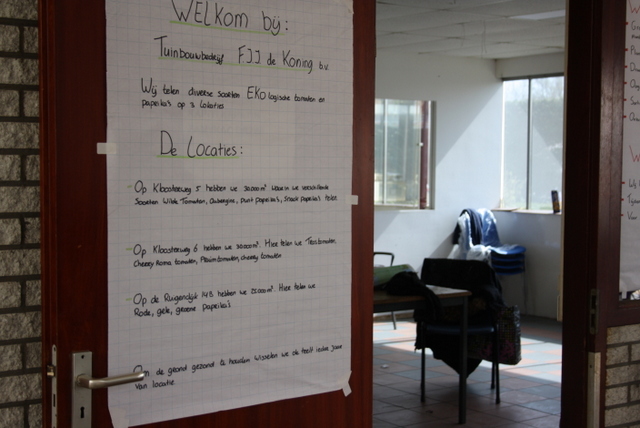 Welkom bij:
Tuinbouwbedrijf FJJ de Koning b.v.
Wij telen diverse soorten EKOlogische tomaten en
paprika's op 3 lokaties
De Locaties:
- Op Kloosterweg 5 hebben we 30.000m² waarin we verschillende
Soorten Wilde Tomaten, Aubergine, punt paprika's, Snack paprika's telen
- Op Kloosterweg 6 hebben we m². Hier telen we Trostomaten,
Cherry Roma tomaten, Pruimtomaten, cherry tomaten
- Op de Rugendijk 14B hebben we m². Hier telen we
Rode, gele, groene paprika's
Om de grond gezond te houden wisselen we de teelt ieder jaar
van locatie.